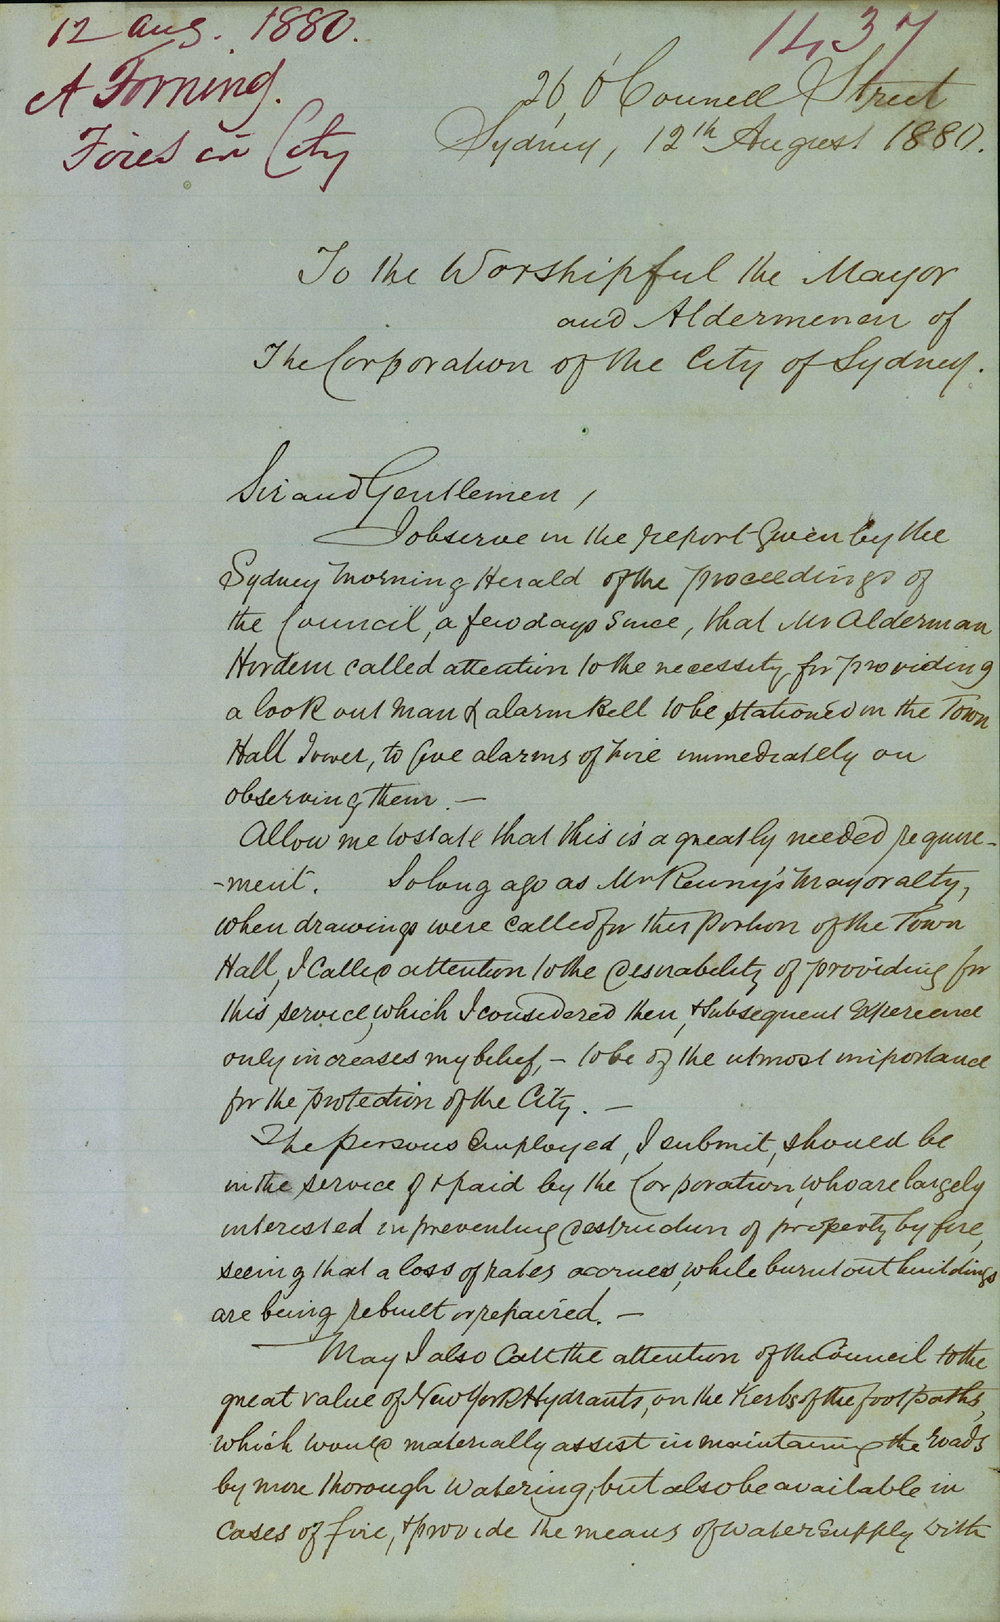 12 Aug. 1880.
1437
A Forning.
Fires in City
26, O'Connell Street
Sydney, 12th August 1880.
To the Worshipful the Mayor
and Aldermenen of
The Corporation of the City of Sydney.
Sir and Gentlemen,
I observe in the report given by the
Sydney Morning Herald of the proceedings of
the Council, a few days since, that Mr Alderman
Hordern called attention to the necessity for providing
a look out man & alarm Bell to be stationed in the Town
Hall Tower, to give alarms of Fire immediately on
observing them. —
Allow me to state that this is a greatly needed require-
-ment. So long ago as Mr Renny's Mayoralty,
when drawings were called for this portion of the Town
Hall, I called attention to the desirability of providing for
this service, which I considered then, & subsequent experience
only increases my belief, – to be of the utmost importance
for the protection of the City. —
The persons employed, I submit, should be
in the service of & paid by the Corporation, who are largely
interested in preventing destruction of property by fire,
seeing that a loss of rates accrues, while burnt out buildings
are being rebuilt or repaired. —
May I also call the attention of the Council to the
great value of New York Hydrants, on the Kerbs of the footpaths,
which would materially assist in maintaining the roads
by more thorough watering, but also be available in
cases of fire, & provide the means of water supply with